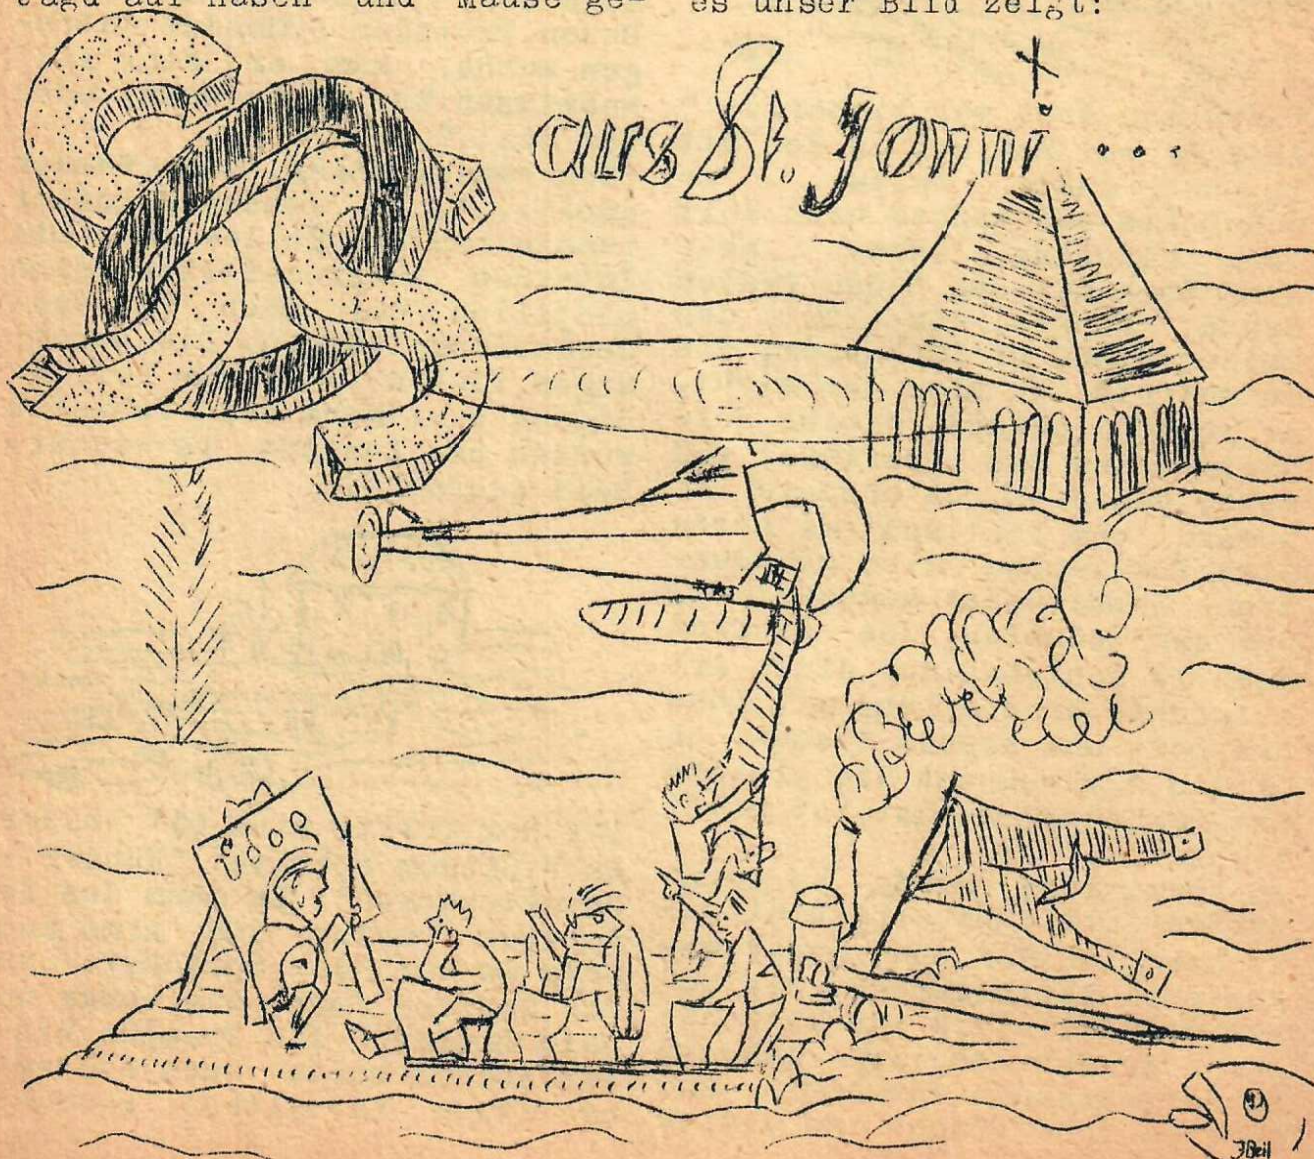 Jagd auf Hasen und Mäuse ge-
es unser Bild zeigt:
SOS
aus St. Jonni ...
JBeil